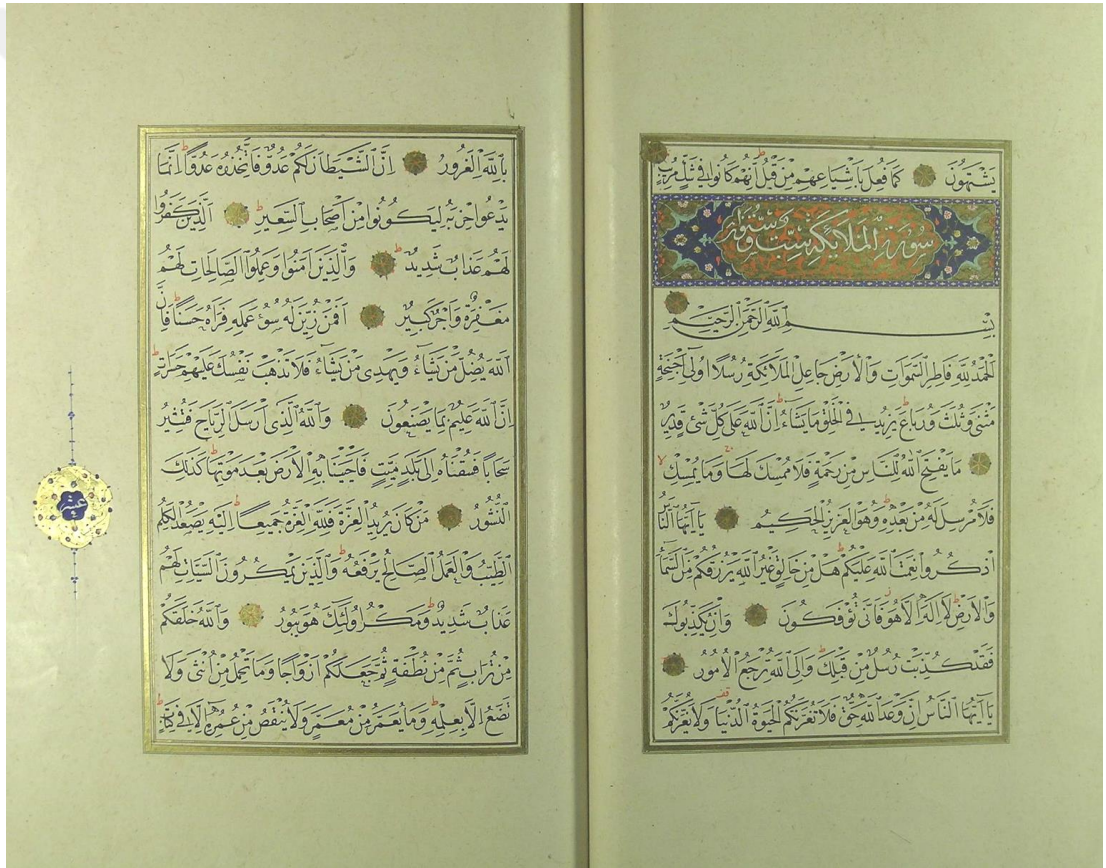 يَشْتَهُونَ كَمَا فُعِلَ بِاَشْيَاعِهِمْ مِنْ قَبْلُ اِنَّهُمْ كَانُوا فِي شَكٍّ مُرِيبٍ
سُورَةُ الْمَلَائِكَةِ سِتٌّ وَ
بِسْمِ اللّٰهِ الرَّحْمٰنِ الرَّحِيمِ
اَلْحَمْدُ لِلّٰهِ فَاطِرِ السَّمٰوَاتِ وَالْاَرْضِ جَاعِلِ الْمَلَائِكَةِ رُسُلًا اُولِٓي اَجْنِحَةٍ
مَثْنٰى وَثُلٰثَ وَرُبَاعَ يَزِيدُ فِي الْخَلْقِ مَا يَشَاءُ اِنَّ اللّٰهَ عَلٰى كُلِّ شَيْءٍ قَدِيرٌ
مَا يَفْتَحِ اللّٰهُ لِلنَّاسِ مِنْ رَحْمَةٍ فَلَا مُمْسِكَ لَهَا وَمَا يُمْسِكْ
فَلَا مُرْسِلَ لَهُ مِنْ بَعْدِهِ وَهُوَ الْعَزِيزُ الْحَكِيمُ يَا اَيُّهَا النَّاسُ
اذْكُرُوا نِعْمَتَ اللّٰهِ عَلَيْكُمْ هَلْ مِنْ خَالِقٍ غَيْرُ اللّٰهِ يَرْزُقُكُمْ مِنَ السَّمَاءِ
وَالْاَرْضِ لَا اِلٰهَ اِلَّا هُوَ فَاَنّٰى تُؤْفَكُونَ وَاِنْ يُكَذِّبُوكَ
فَقَدْ كُذِّبَتْ رُسُلٌ مِنْ قَبْلِكَ وَاِلَى اللّٰهِ تُرْجَعُ الْاُمُورُ
يَا اَيُّهَا النَّاسُ اِنَّ وَعْدَ اللّٰهِ حَقٌّ فَلَا تَغُرَّنَّكُمُ الْحَيٰوةُ الدُّنْيَا وَلَا يَغُرَّنَّكُمْ
بِاللّٰهِ الْغَرُورُ اِنَّ الشَّيْطَانَ لَكُمْ عَدُوٌّ فَاتَّخِذُوهُ عَدُوًّا اِنَّمَا
يَدْعُوا حِزْبَهُ لِيَكُونُوا مِنْ اَصْحَابِ السَّعِيرِ اَلَّذِينَ كَفَرُوا
لَهُمْ عَذَابٌ شَدِيدٌ وَالَّذِينَ اٰمَنُوا وَعَمِلُوا الصَّالِحَاتِ لَهُمْ
مَغْفِرَةٌ وَاَجْرٌ كَبِيرٌ اَفَمَنْ زُيِّنَ لَهُ سُوءُ عَمَلِهِ فَرَاٰهُ حَسَنًا فَاِنَّ
اللّٰهَ يُضِلُّ مَنْ يَشَاءُ وَيَهْدِي مَنْ يَشَاءُ فَلَا تَذْهَبْ نَفْسُكَ عَلَيْهِمْ حَسَرَاتٍ
اِنَّ اللّٰهَ عَلِيمٌ بِمَا يَصْنَعُونَ وَاللّٰهُ الَّذِي اَرْسَلَ الرِّيَاحَ فَتُثِيرُ
سَحَابًا فَسُقْنَاهُ اِلٰى بَلَدٍ مَيِّتٍ فَاَحْيَيْنَا بِهِ الْاَرْضَ بَعْدَ مَوْتِهَا كَذٰلِكَ
النُّشُورُ مَنْ كَانَ يُرِيدُ الْعِزَّةَ فَلِلّٰهِ الْعِزَّةُ جَمِيعًا اِلَيْهِ يَصْعَدُ الْكَلِمُ
الطَّيِّبُ وَالْعَمَلُ الصَّالِحُ يَرْفَعُهُ وَالَّذِينَ يَمْكُرُونَ السَّيِّئَاتِ لَهُمْ
عَذَابٌ شَدِيدٌ وَمَكْرُ اُولٰئِكَ هُوَ يَبُورُ وَاللّٰهُ خَلَقَكُمْ
مِنْ تُرَابٍ ثُمَّ مِنْ نُطْفَةٍ ثُمَّ جَعَلَكُمْ اَزْوَاجًا وَمَا تَحْمِلُ مِنْ اُنْثٰى وَلَا
تَضَعُ اِلَّا بِعِلْمِهِ وَمَا يُعَمَّرُ مِنْ مُعَمَّرٍ وَلَا يُنْقَصُ مِنْ عُمُرِهِ اِلَّا فِي كِتَابٍ
عشر